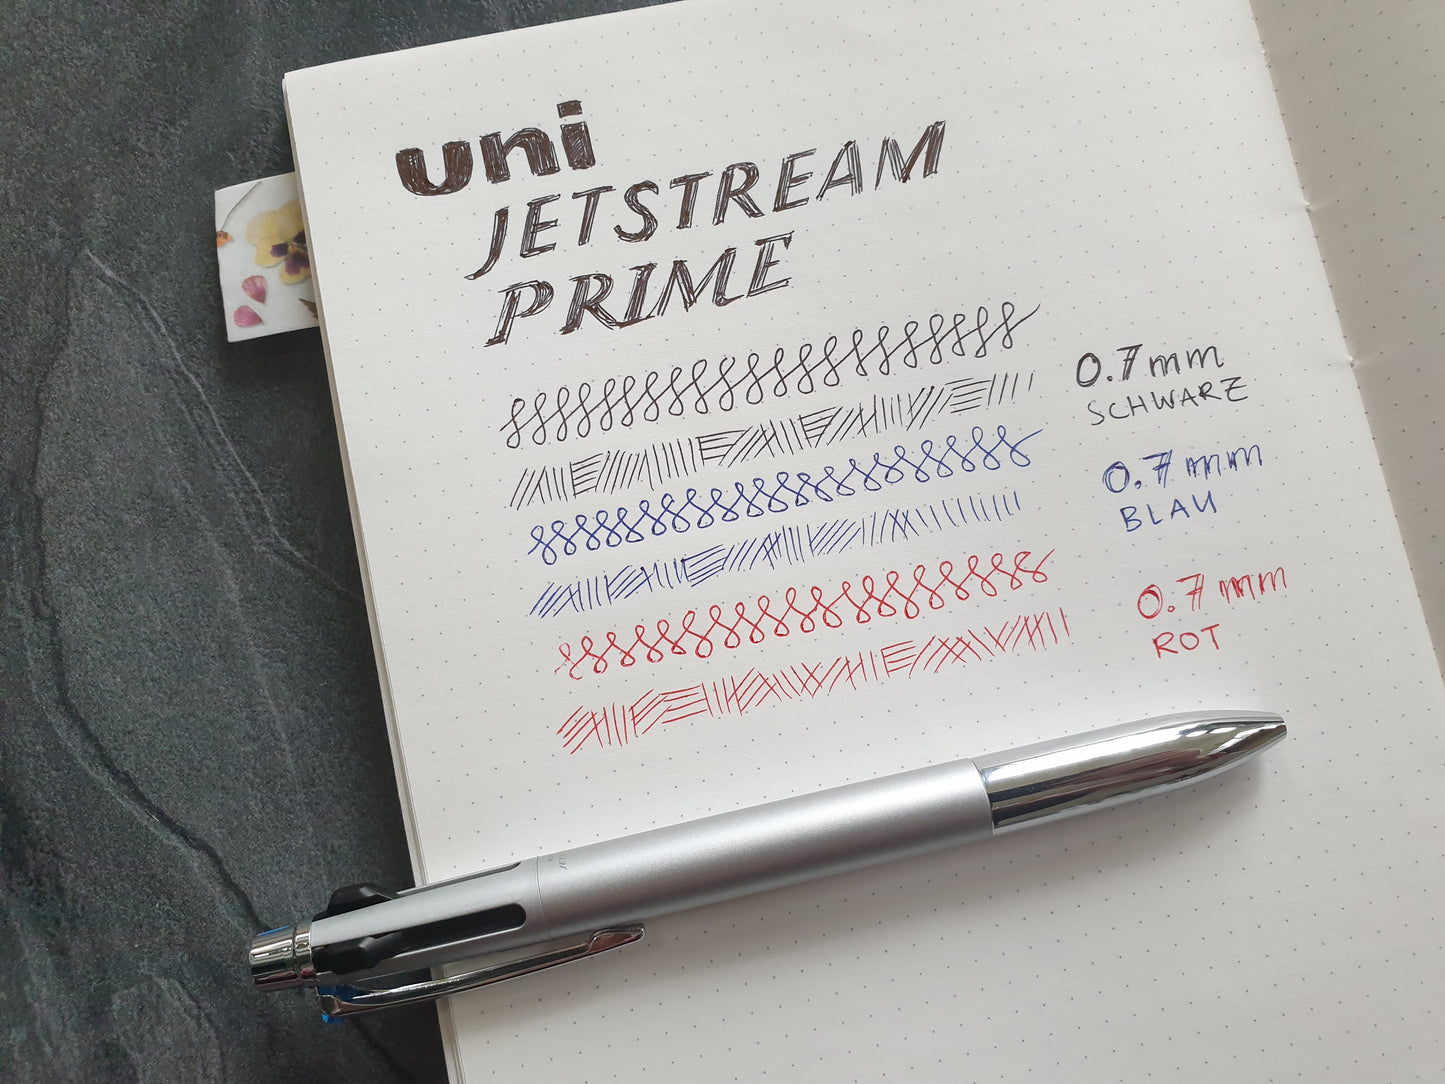 uni
JETSTREAM
PRIME
0.7 mm
SCHWARZ
0.7 mm
BLAU
0.7 mm
ROT